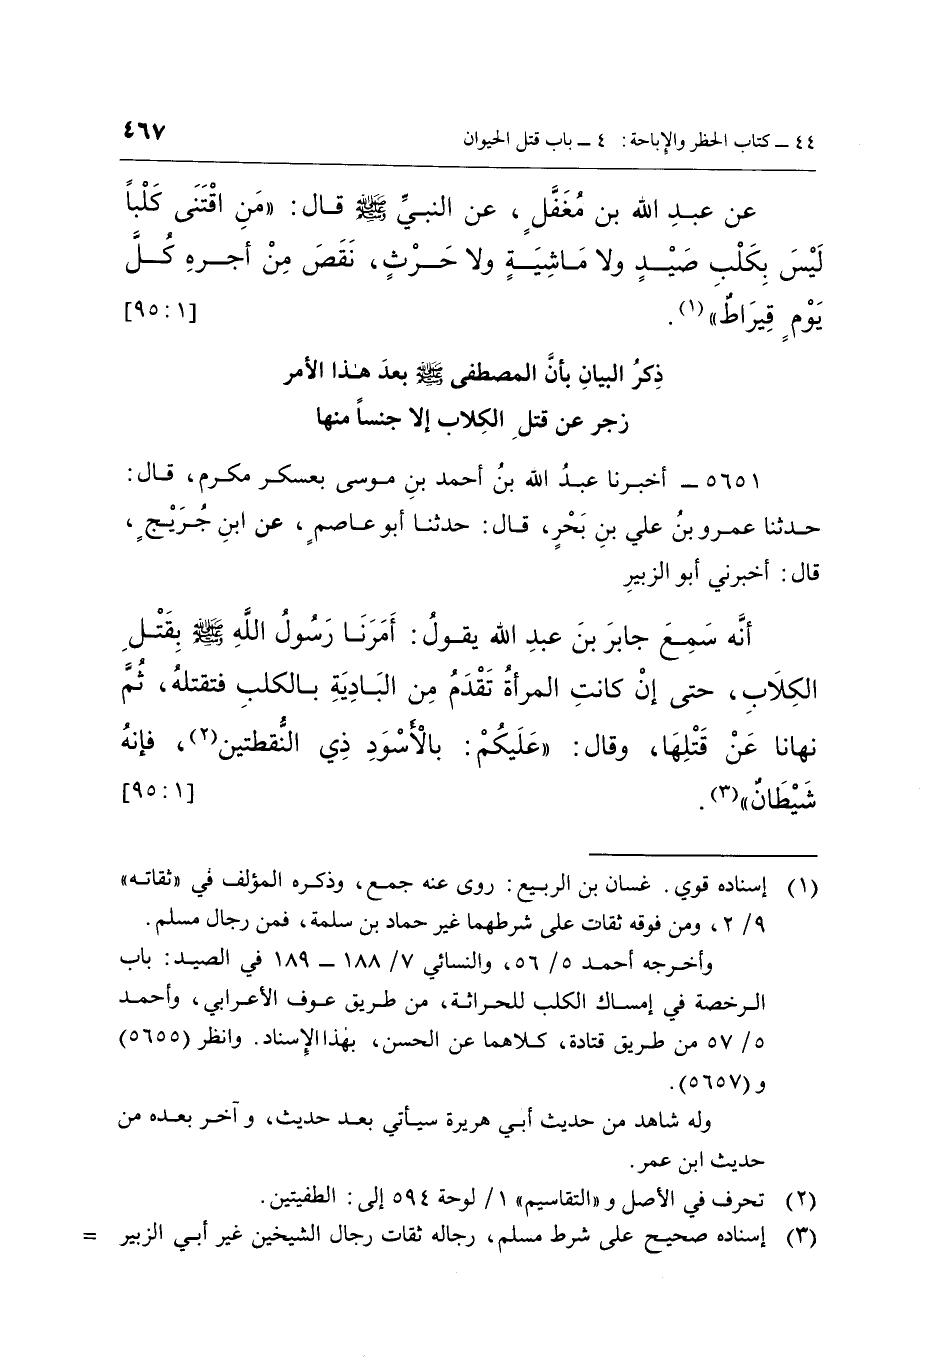 ٤٤ ــ كتاب الحظر والإباحة: ٤ ــ باب قتل الحيوان ٤٦٧
عن عبدِ الله بن مُغَفَّلٍ، عن النبيِّ ﷺ قال: «مَنِ اقْتَنَى كَلْباً
لَيْسَ بِكَلْبِ صَيْدٍ ولا مَاشِيَةٍ ولا حَرْثٍ، نَقَصَ مِنْ أجرِهِ كُلَّ
يَوْمٍ قِيرَاطٌ»(١). [١: ٩٥]
ذِكرُ البيانِ بأنَّ المصطفى ﷺ بعدَ هٰذا الأمر
زجر عن قتلِ الكِلابِ إلا جنساً منها
٥٦٥١ ــ أخبرنا عبدُ الله بنُ أحمد بنِ موسى بعسكرِ مكرم، قال:
حدثنا عمرو بنُ علي بنِ بَحْرٍ، قال: حدثنا أبو عاصمٍ، عن ابنِ جُرَيْجٍ،
قال: أخبرني أبو الزبيرِ
أنَّه سَمِعَ جابرَ بنَ عبدِ الله يقولُ: أَمَرَنَا رَسُولُ اللَّهِ ﷺ بِقَتْلِ
الكِلَابِ، حتى إنْ كانتِ المرأةُ تَقْدَمُ مِن البَادِيَةِ بالكلبِ فتقتلهُ، ثُمَّ
نهانا عَنْ قَتْلِهَا، وقال: «عَلَيكُمْ: بالْأَسْوَدِ ذِي النُّقطتين(٢)، فإنهُ
شَيْطَانٌ»(٣). [١: ٩٥]
(١) إسناده قوي. غسان بن الربيع: روى عنه جمع، وذكره المؤلف في «ثقاته»
٩/ ٢، ومن فوقه ثقات على شرطهما غير حماد بن سلمة، فمن رجال مسلم.
وأخرجه أحمد ٥/ ٥٦، والنسائي ٧/ ١٨٨ ــ ١٨٩ في الصيد: باب
الرخصة في إمساك الكلب للحراثة، من طريق عوف الأعرابي، وأحمد
٥/ ٥٧ من طريق قتادة، كلاهما عن الحسن، بهٰذا الإسناد. وانظر (٥٦٥٥)
و (٥٦٥٧).
وله شاهد من حديث أبي هريرة سيأتي بعد حديث، و آخر بعده من
حديث ابن عمر.
(٢) تحرف في الأصل و «التقاسيم» ١/ لوحة ٥٩٤ إلى: الطفيتين.
(٣) إسناده صحيح على شرط مسلم، رجاله ثقات رجال الشيخين غير أبي الزبير =